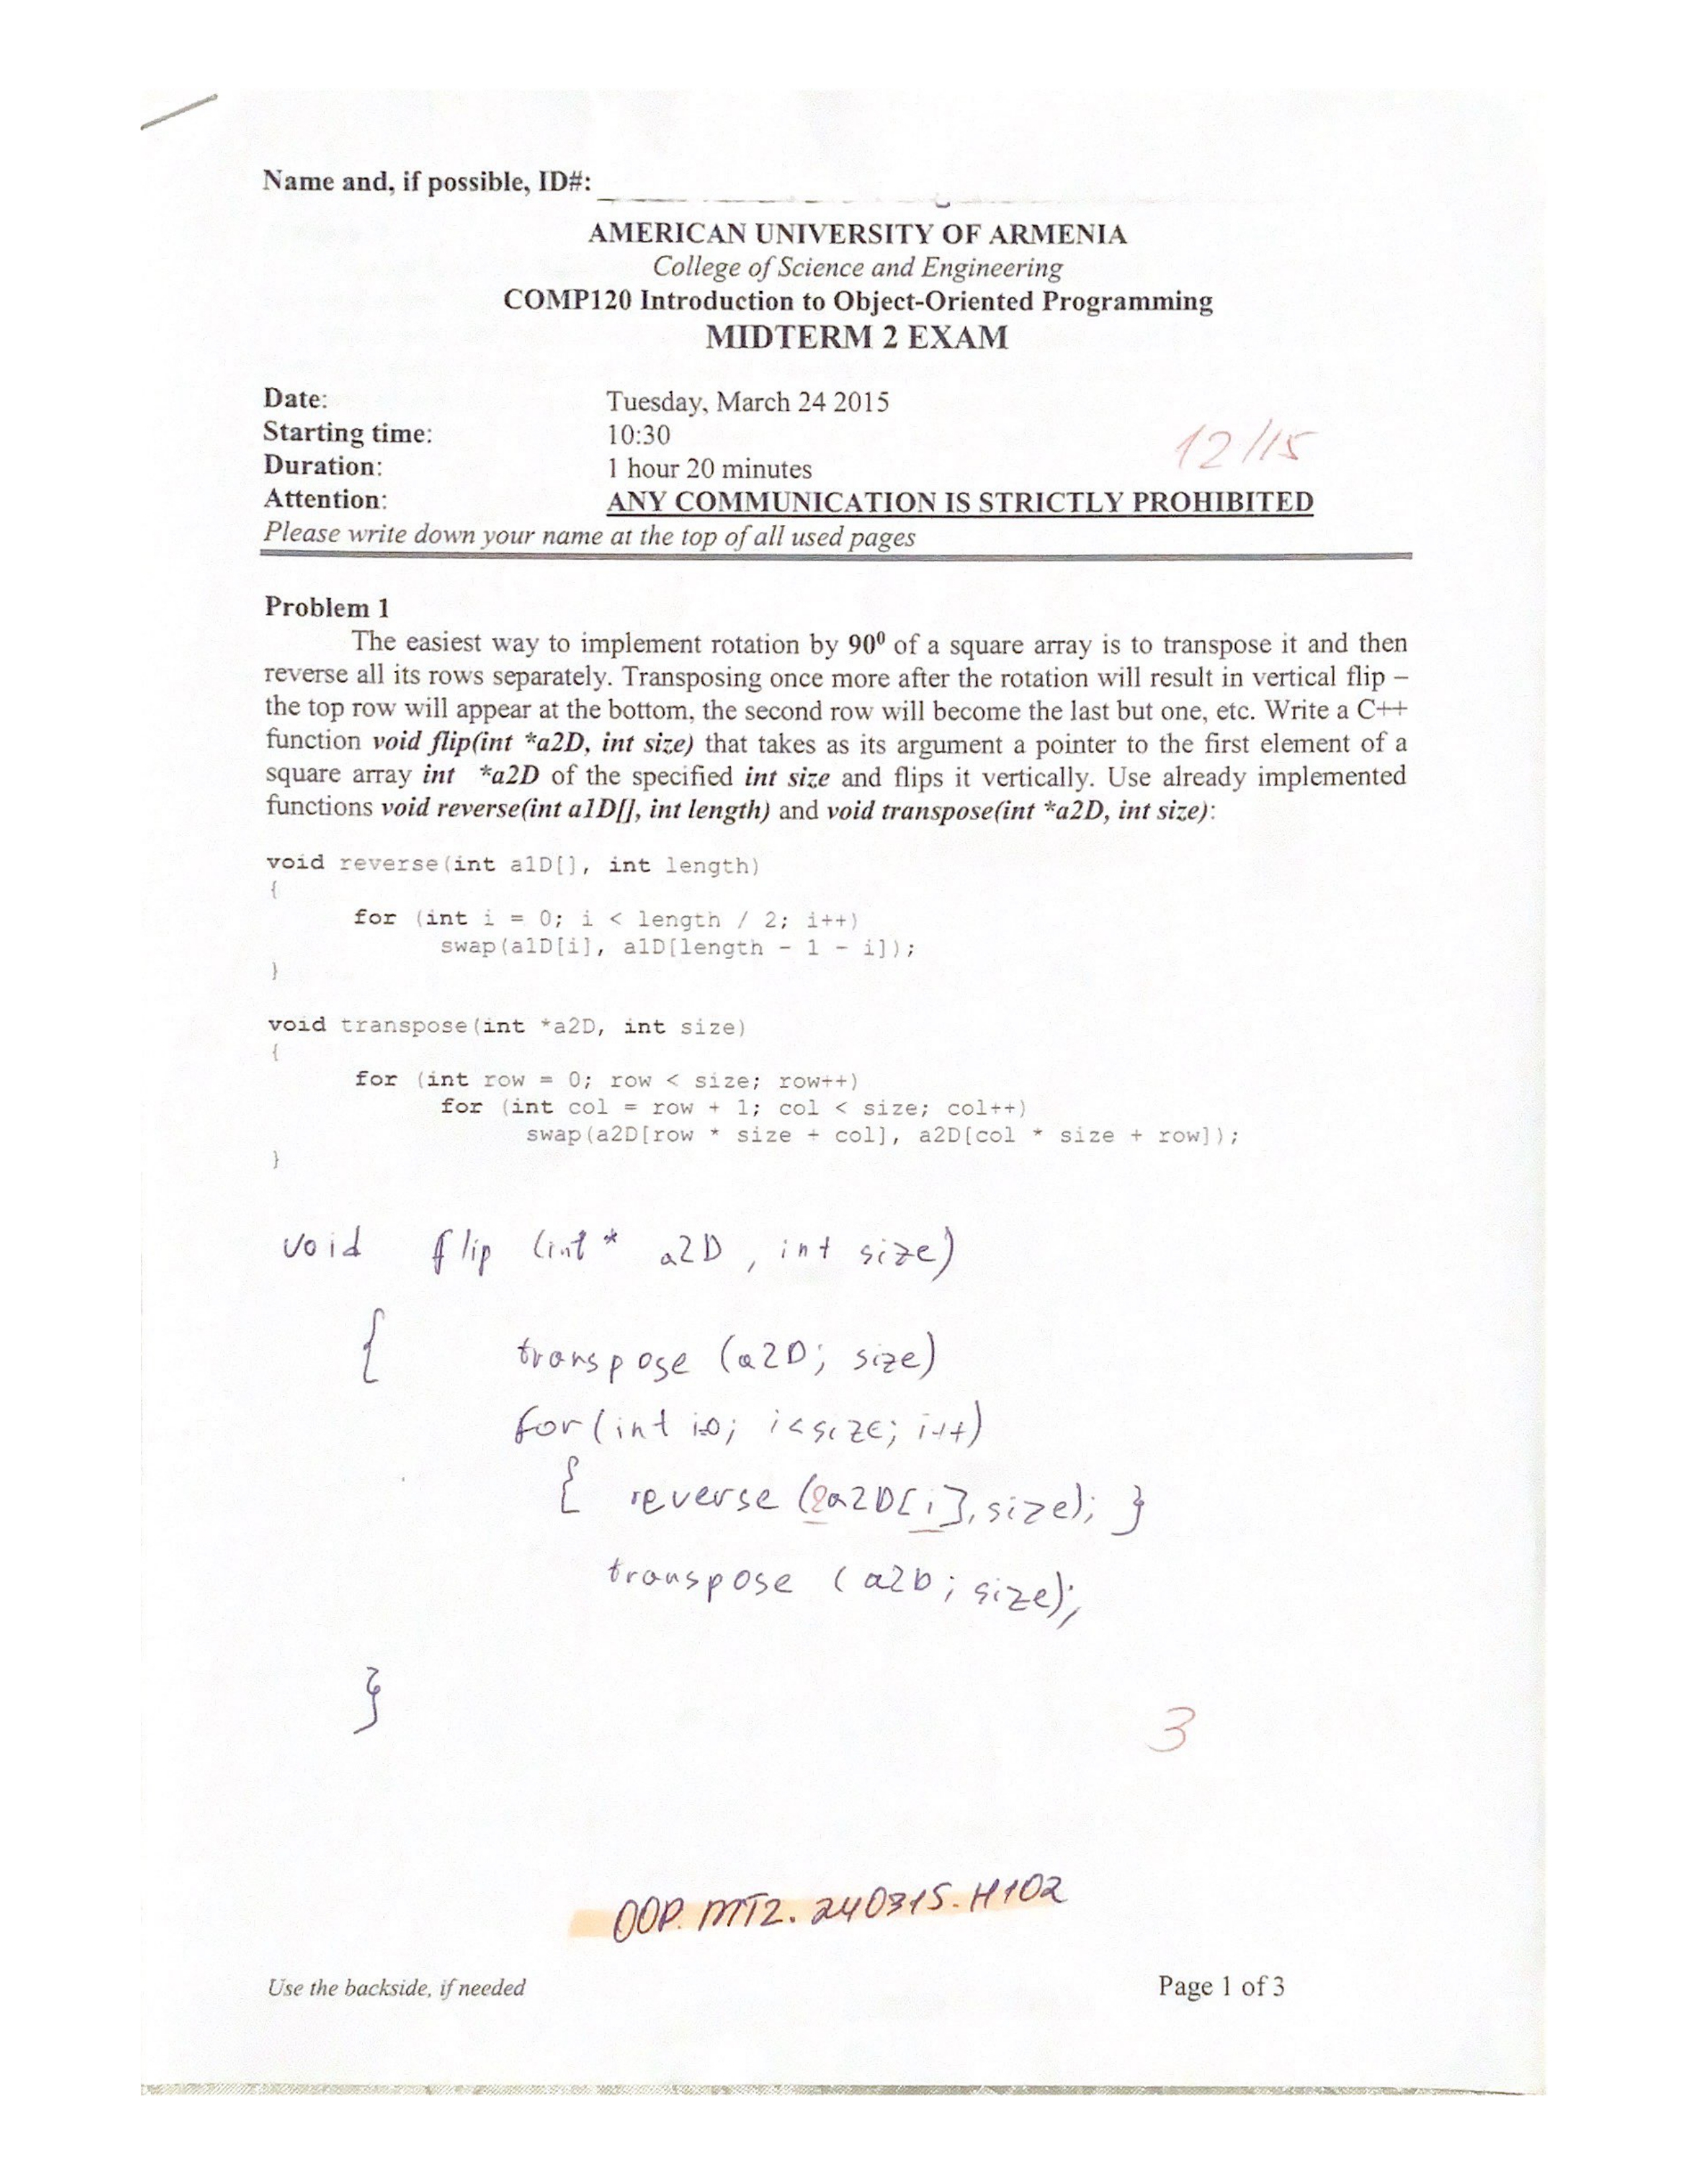 Name and, if possible, ID#:
AMERICAN UNIVERSITY OF ARMENIA
College of Science and Engineering
COMP120 Introduction to Object-Oriented Programming
MIDTERM 2 EXAM
Date: Tuesday, March 24 2015
Starting time: 10:30
12/15
Duration: 1 hour 20 minutes
Attention: ANY COMMUNICATION IS STRICTLY PROHIBITED
Please write down your name at the top of all used pages
Problem 1
The easiest way to implement rotation by 90⁰ of a square array is to transpose it and then
reverse all its rows separately. Transposing once more after the rotation will result in vertical flip –
the top row will appear at the bottom, the second row will become the last but one, etc. Write a C++
function void flip(int *a2D, int size) that takes as its argument a pointer to the first element of a
square array int *a2D of the specified int size and flips it vertically. Use already implemented
functions void reverse(int a1D[], int length) and void transpose(int *a2D, int size):
void reverse(int a1D[], int length)
{
for (int i = 0; i < length / 2; i++)
swap(a1D[i], a1D[length - 1 - i]);
}
void transpose(int *a2D, int size)
{
for (int row = 0; row < size; row++)
for (int col = row + 1; col < size; col++)
swap(a2D[row * size + col], a2D[col * size + row]);
}
void flip (int * a2D, int size)
{ transpose (a2D; size)
for (int i=0; i<size; i++)
{ reverse (&a2D[i], size); }
transpose (a2D; size);
}
3
OOP. MT2. 240315. H102
Use the backside, if needed Page 1 of 3